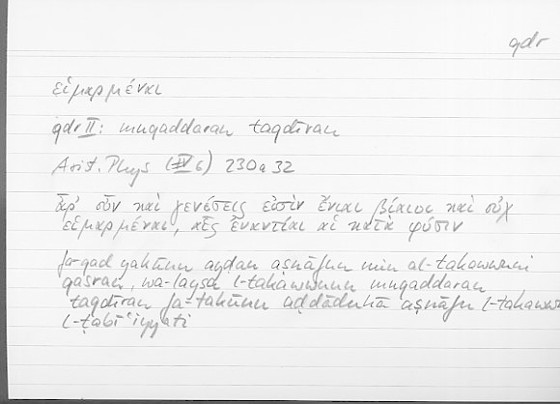 qdr
εἱμαρμέναι
qdr II: muqaddaran taqdīran
Arist. Phys (IV 6) 230a32
ἆρ' οὖν καὶ γενέσεις εἰσὶν ἔνιαι βίαιοι καὶ οὐχ
εἱμαρμέναι, αἷς ἐναντίαι αἱ κατὰ φύσιν
fa-qad yakūnu ayḍan aṣnāfun min al-takawwuni
qasran, wa-laysa l-takawwunu muqaddaran
taqdīran fa-takūnu aḍdāduhā aṣnāfu l-takaww
l-ṭabīʿiyyati